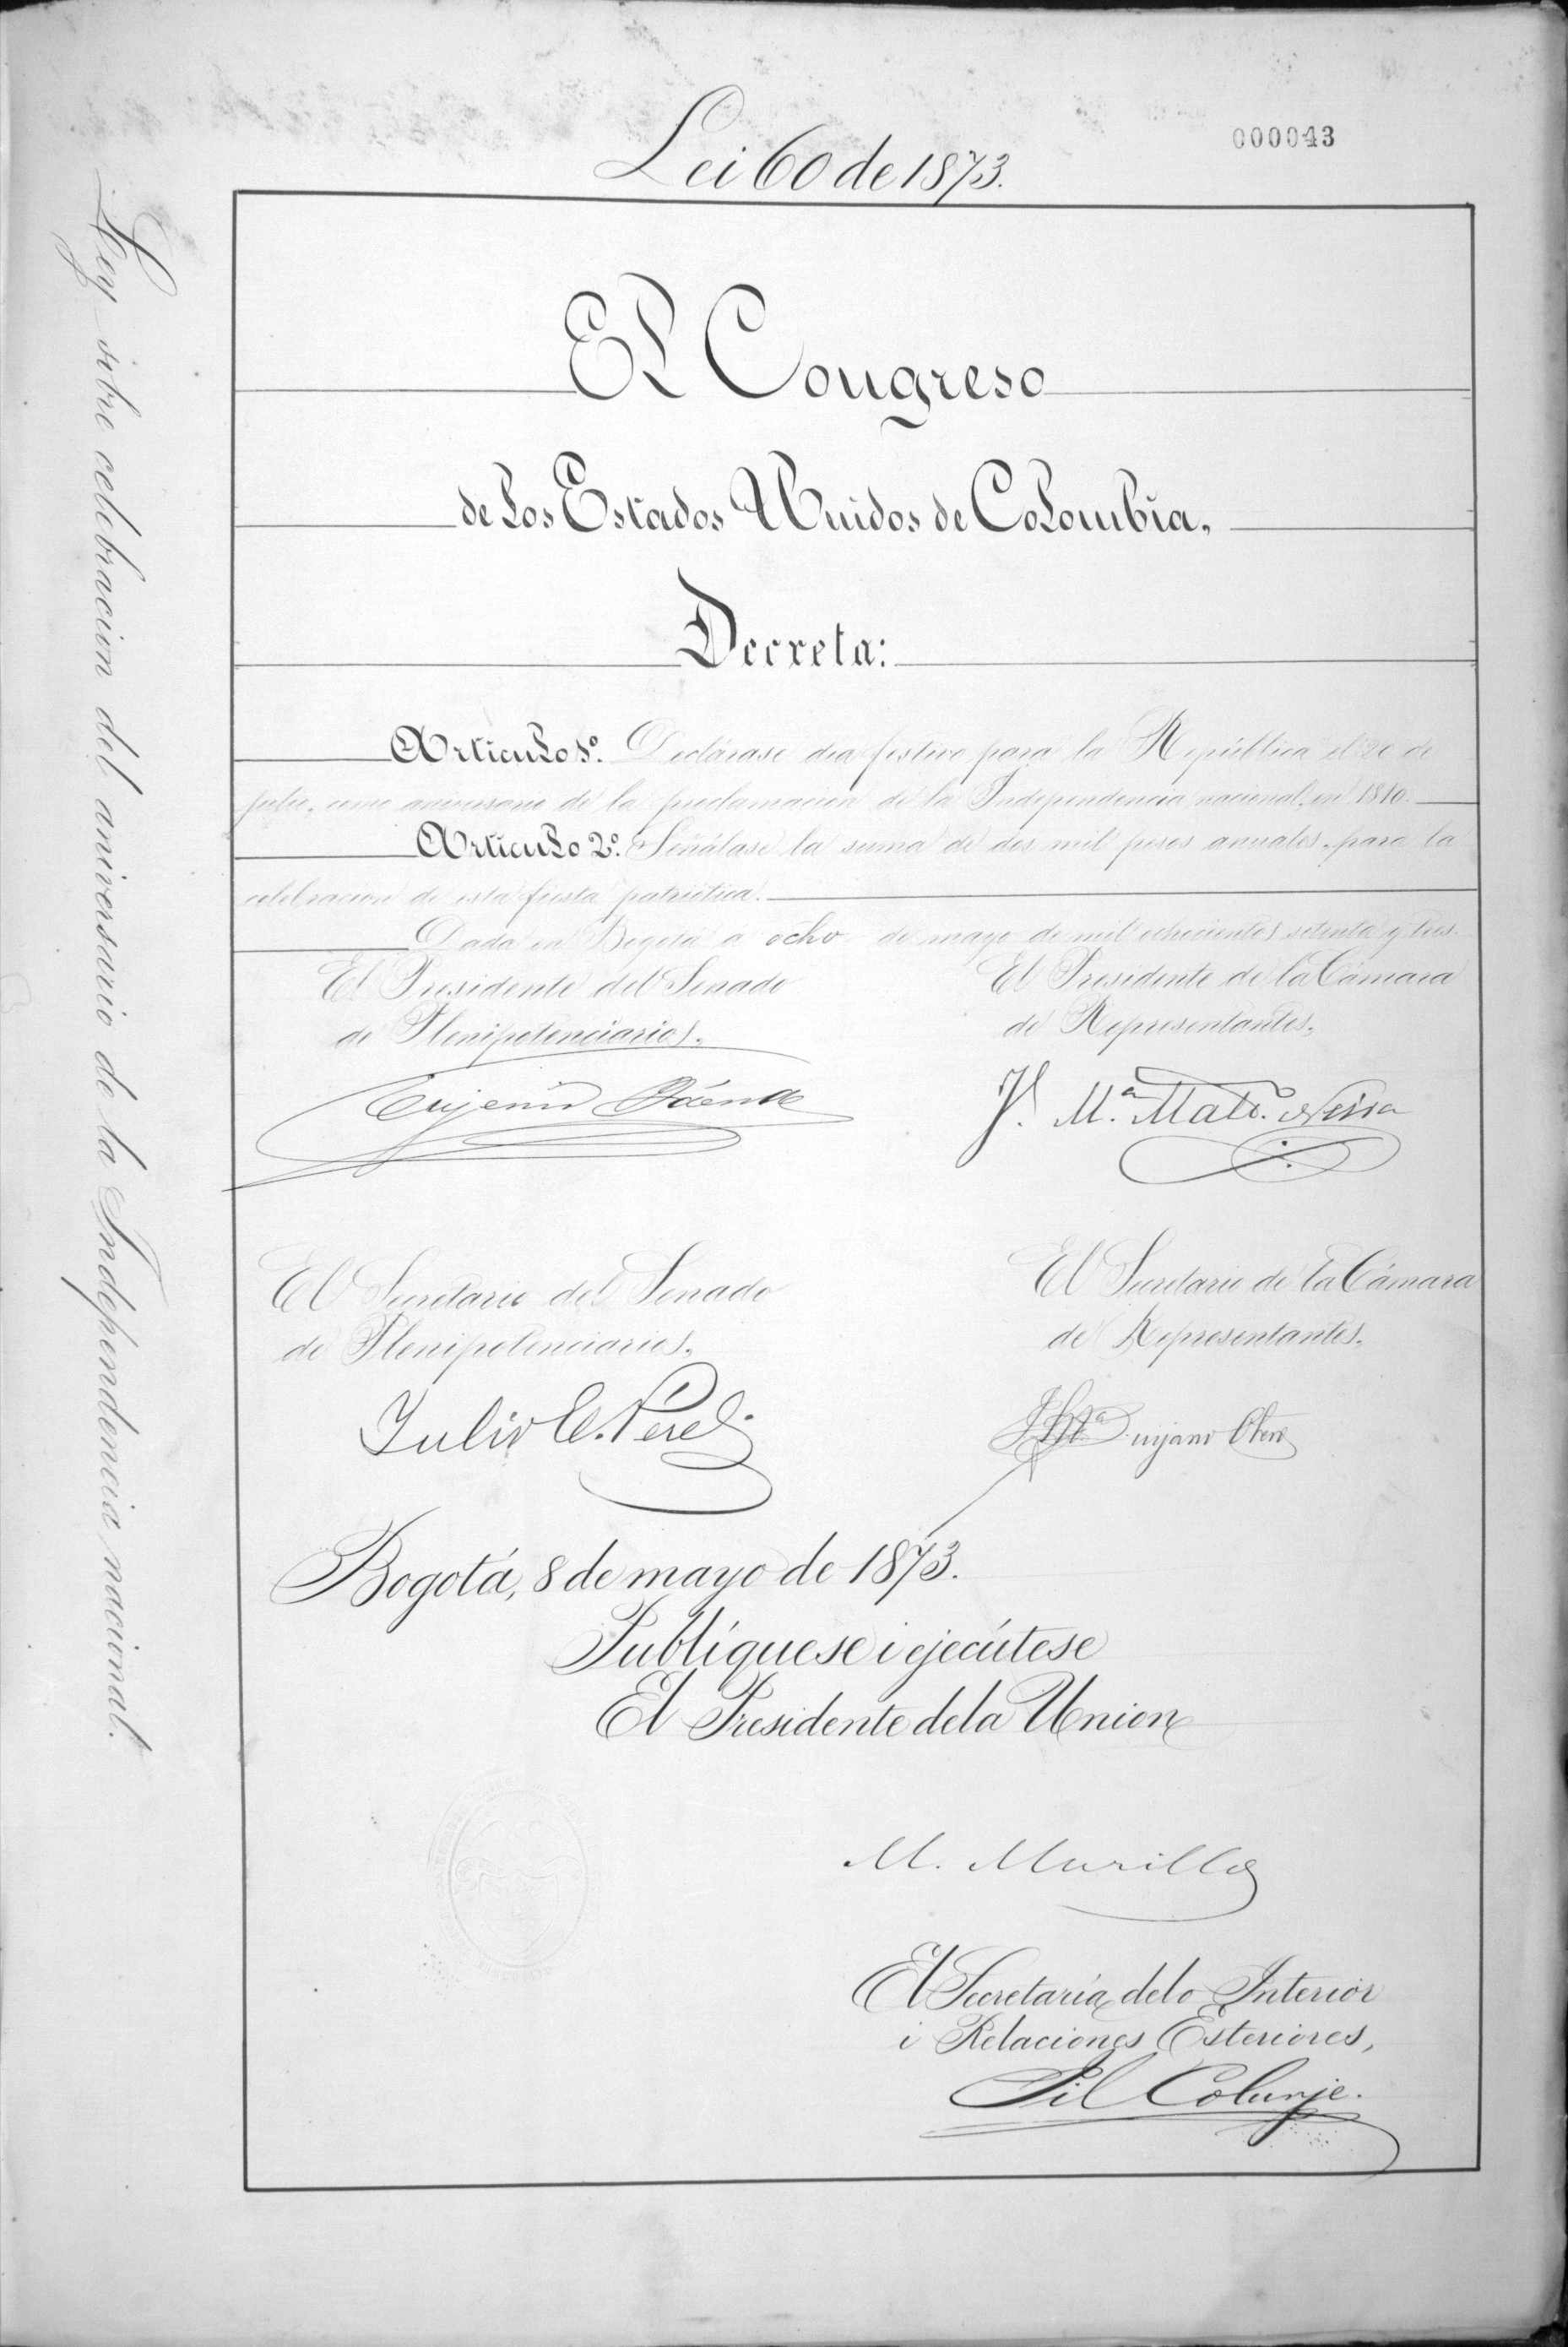 Lei 60 de 1873.
000043
Ley sobre celebracion del aniversario de la Independencia nacional.
El Congreso
de los Estados Unidos de Colombia,
Decreta:
Artículo 1º. Declárase dia festivo para la República el 20 de
julio, como aniversario de la proclamacion de la Independencia nacional, en 1810.
Artículo 2º. Señálase la suma de dos mil pesos anuales, para la
celebracion de esta fiesta patriótica.
Dada en Bogotá a ocho de mayo de mil ochocientos setenta y tres.
El Presidente del Senado
de Plenipotenciarios,
El Presidente de la Cámara
de Representantes,
Eujenio Báena
J. Mª. Malo. Neira
El Secretario del Senado
de Plenipotenciarios,
El Secretario de la Cámara
de Representantes,
Julio E. Pérez
Quijano Otero
Bogotá, 8 de mayo de 1873.
Publíquese i ejecútese
El Presidente de la Union
M. Murillo
El Secretario de lo Interior
i Relaciones Esteriores,
Gil Colunje.